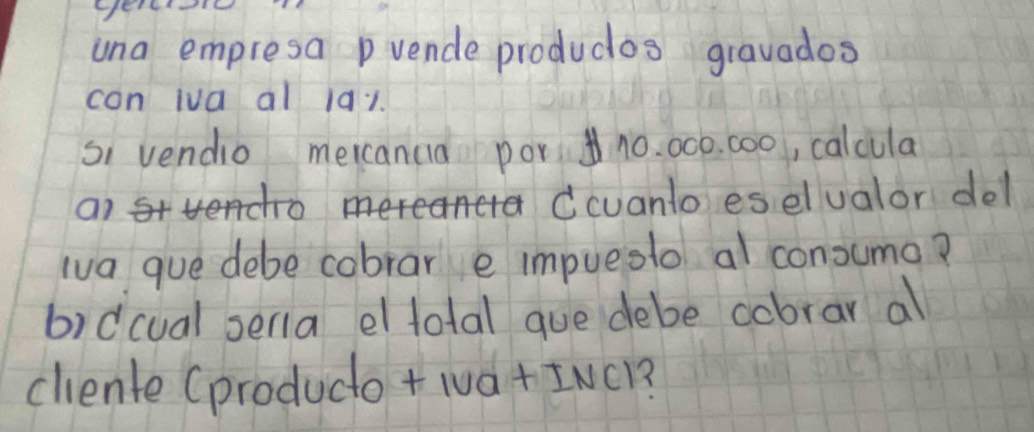 una empresa p vende productos gravados
con iva al 19%.
si vendio mercancia por $10.000.000, calcula
a) si vendio mercancia ¿cuanto es el valor del
iva que debe cobrar e impuesto al consumo?
b) ¿cual seria el total que debe cobrar al
cliente (producto + iva + INC)?